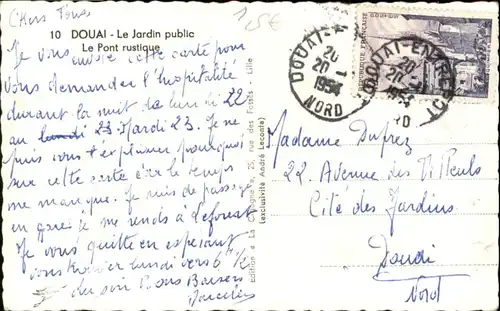 Chers Tous
10 DOUAI - Le Jardin public
Le Pont rustique
Je vous envoie cette carte pour
vous demander l'hospitalité
durant la nuit de lundi 22
au lundi 23 Mardi 23. Je ne
puis vous expliquer pourquoi
sur cette carte car le temps
me manque. Je suis de passage
en gare je me rends à
Je vous quitte en espérant
vous trouver lundi vers 6h 1/2
du soir Bons Baisers
Edition « La Cigogne », 25, rue des Fossés - Lille
(exclusivité André Leconte)
DOUAI
20
20 - 1
1954
NORD
REPUBLIQUE FRANÇAISE
DOUAI-ENTREPOT
20
20 - 1
1954
Madame Duprez
22 Avenue des Tilleuls
Cité des Jardins
Douai
Nord